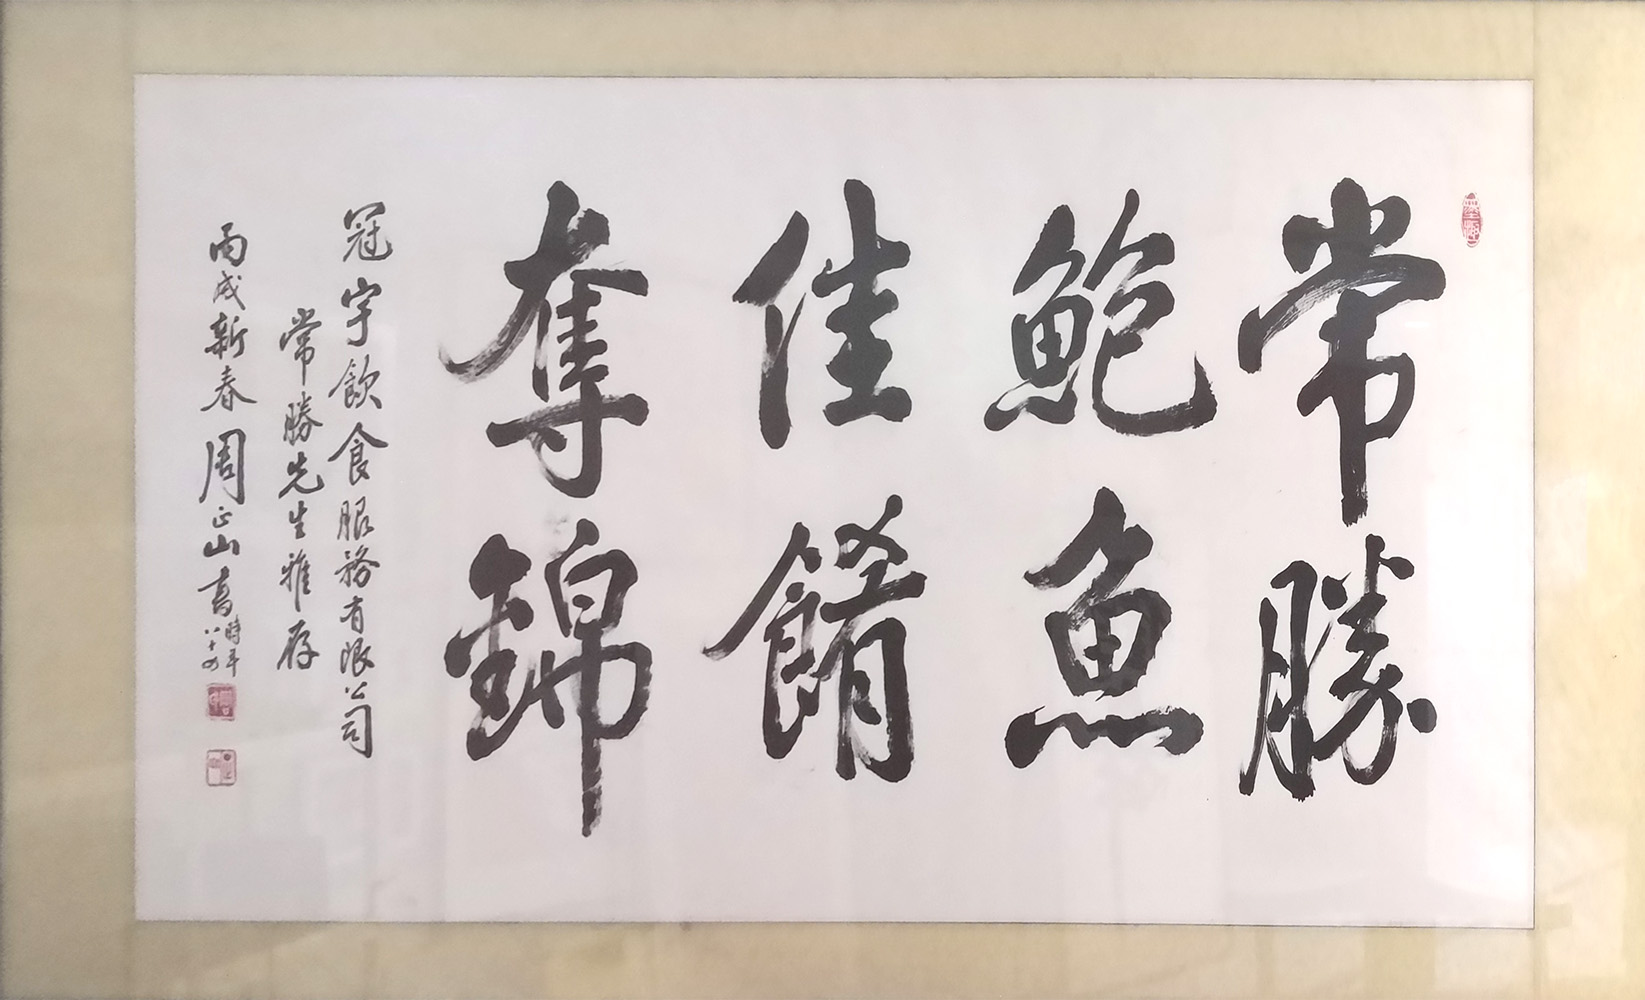 常勝
鮑魚
佳餚
奪錦
冠宇飲食服務有限公司
常勝先生雅存
丙戌新春周正山書時年八十四